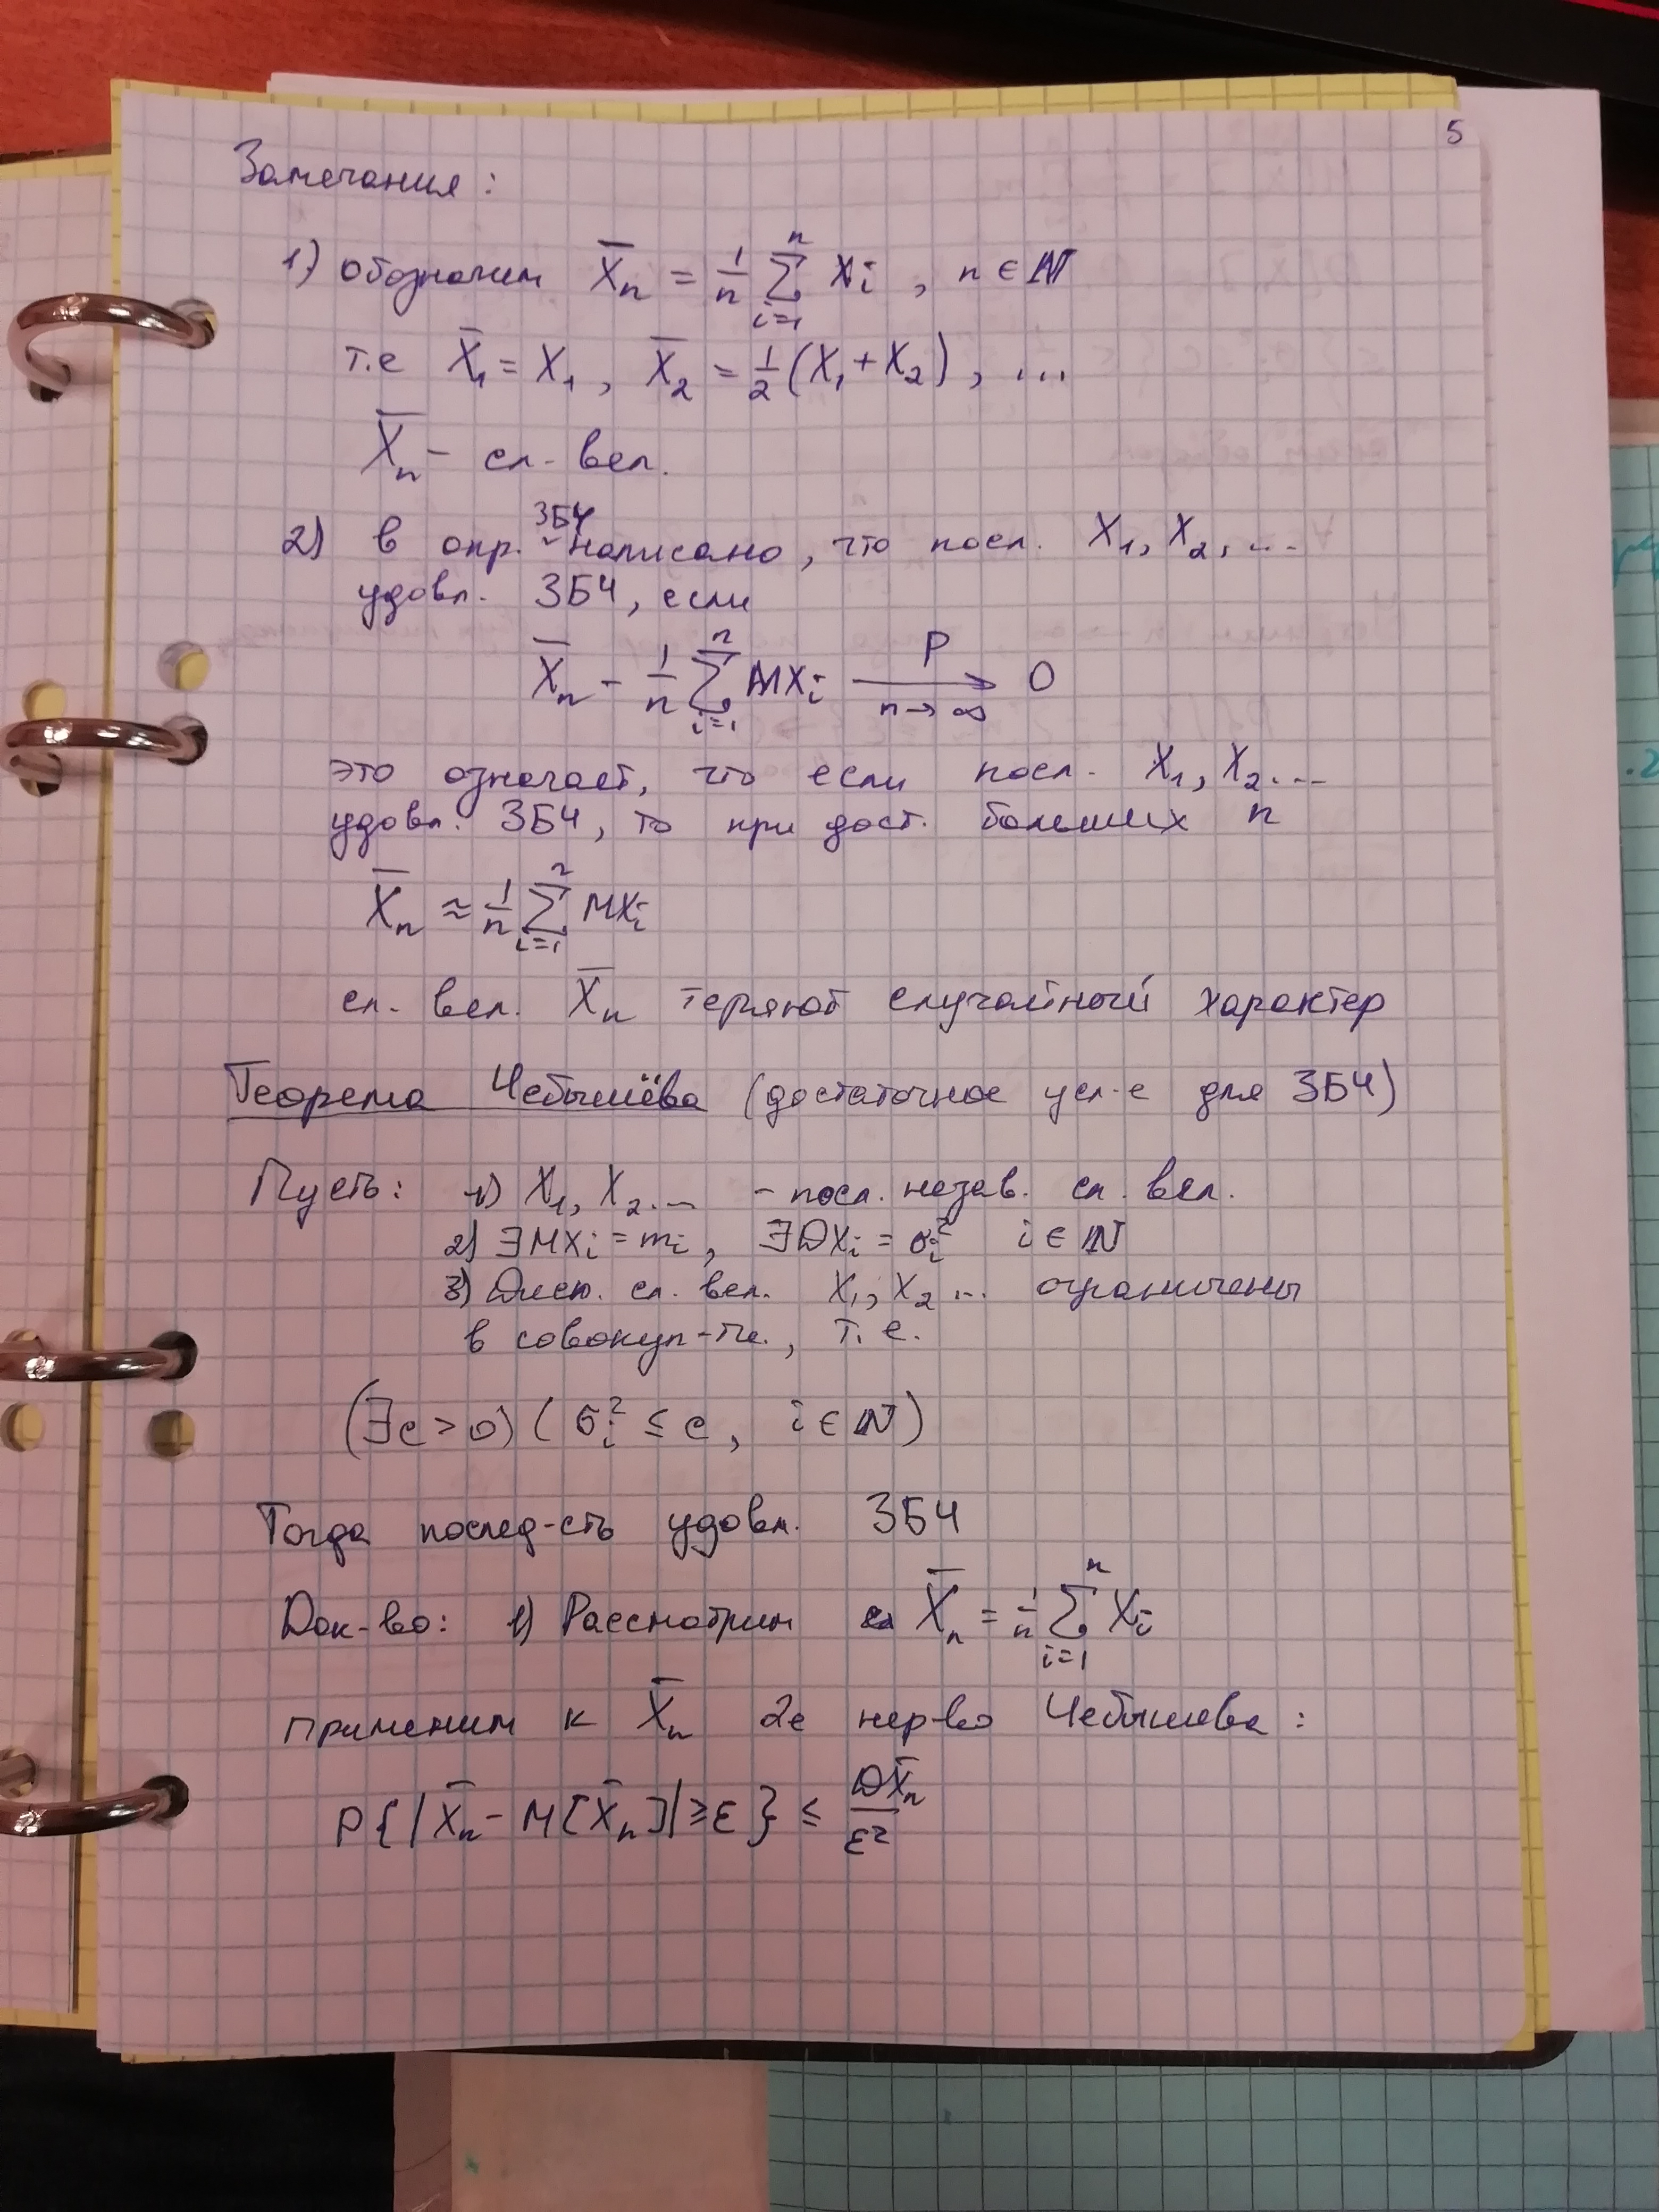 5
Замечания:
1) обозначим X̄ₙ = 1/n ∑ᵢ₌₁ⁿ Xᵢ , n ∈ ℕ
т.е X̄₁ = X₁ , X̄₂ = 1/2 (X₁ + X₂) , ...
X̄ₙ - сл. вел.
2) в опр. ЗБЧ написано, что посл. X₁, X₂, ...
удовл. ЗБЧ, если
X̄ₙ - 1/n ∑ᵢ₌₁ⁿ MXᵢ —P→ (n→∞) 0
это означает, что если посл. X₁, X₂ ...
удовл. ЗБЧ, то при дост. больших n
X̄ₙ ≈ 1/n ∑ᵢ₌₁ⁿ MXᵢ
сл. вел. X̄ₙ теряют случайный характер
Теорема Чебышёва (достаточное усл-е для ЗБЧ)
Пусть: 1) X₁, X₂ ... - посл. незав. сл. вел.
2) ∃MXᵢ = mᵢ, ∃DXᵢ = σᵢ² i ∈ ℕ
3) Дисп. сл. вел. X₁, X₂ ... ограничены
в совокуп-ти., т.е.
(∃c > 0) (σᵢ² ≤ c, i ∈ ℕ)
Тогда послед-сть удовл. ЗБЧ
Док-во: 1) Рассмотрим X̄ₙ = 1/n ∑ᵢ₌₁ⁿ Xᵢ
применим к X̄ₙ 2е нер-во Чебышева:
P{|X̄ₙ - M[X̄ₙ]| ≥ ε} ≤ DX̄ₙ/ε²